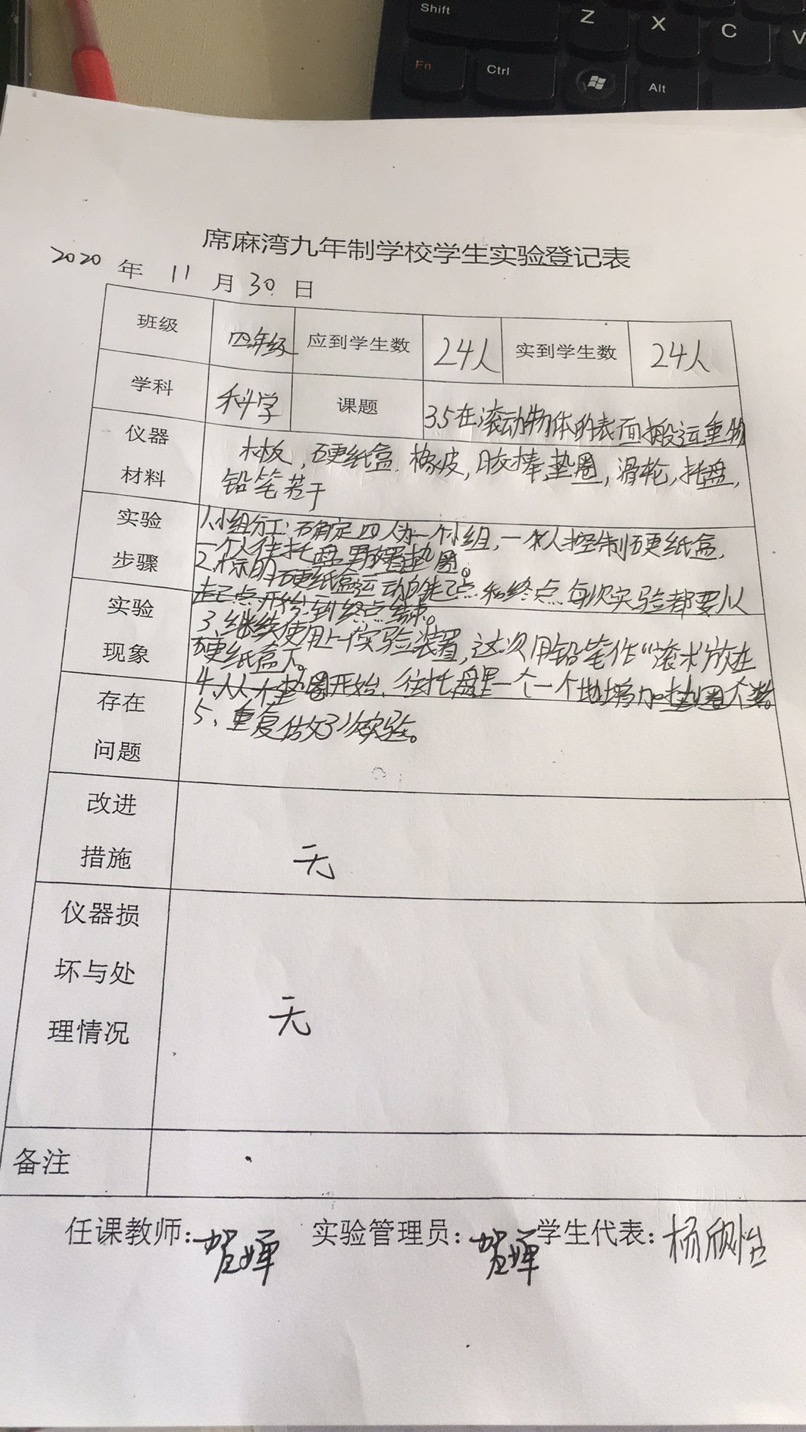 Shift
Z
X
C
V
Fn
Ctrl
Alt
席麻湾九年制学校学生实验登记表
2020 年 11 月 30 日
班级 四年级 应到学生数 24人 实到学生数 24人
学科 科学 课题 3.5在滚动物体的表面搬运重物
仪器材料 木板,硬纸盒,橡皮,胶棒,垫圈,滑轮,托盘,
铅笔若干
实验步骤 1.小组分工:确定四人为一个小组,一个人控制硬纸盒,
一个人往托盘里增垫圈。
2.标明硬纸盒运动的起点和终点,每次实验都要从
起点开始到终点结束。
实验现象 3.继续使用上个实验装置,这次用铅笔作“滚木”放在
硬纸盒下。
4.从个垫圈开始,往托盘里一个一个地增加垫圈个数。
存在问题 5、重复做好3次实验。
改进措施 无
仪器损坏与处理情况 无
备注
任课教师:贺婵 实验管理员:贺婵 学生代表:杨欣怡